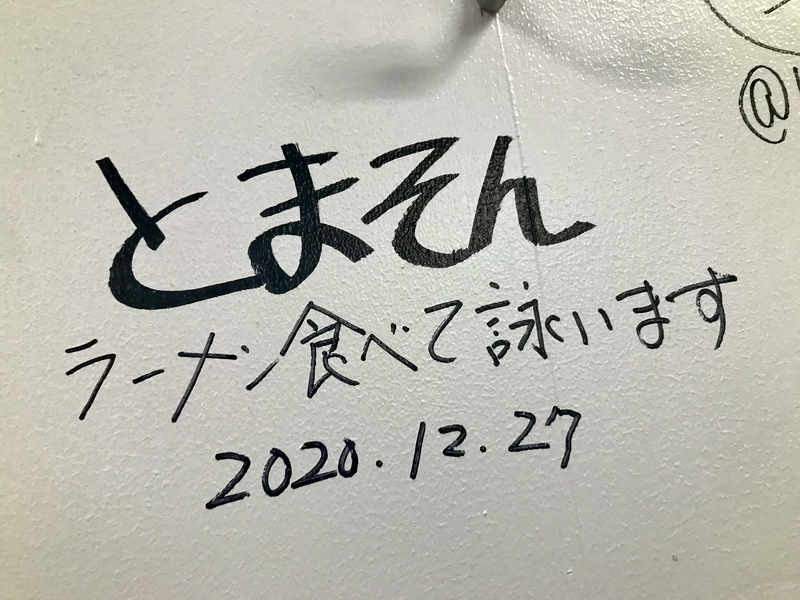 とまそん
ラーメン食べて詠います
2020.12.27
@